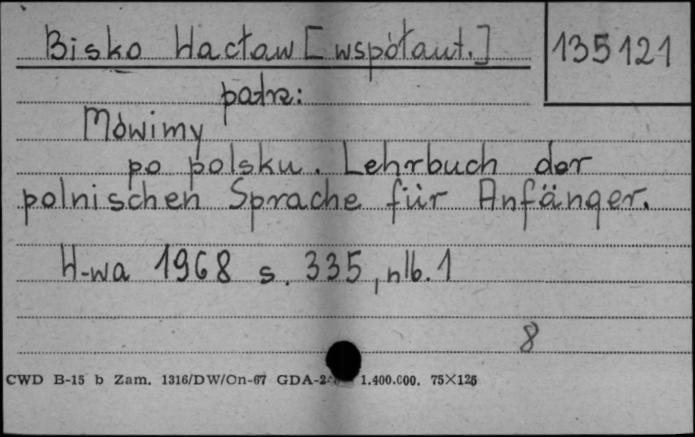 Bisko Wacław [współaut.]
135121
patrz:
Mówimy
po polsku. Lehrbuch der
polnischen Sprache für Anfänger.
W-wa 1968 s. 335, nlb. 1
8
CWD B-15 b Zam. 1316/DW/On-67 GDA-2 1.400.000. 75×125